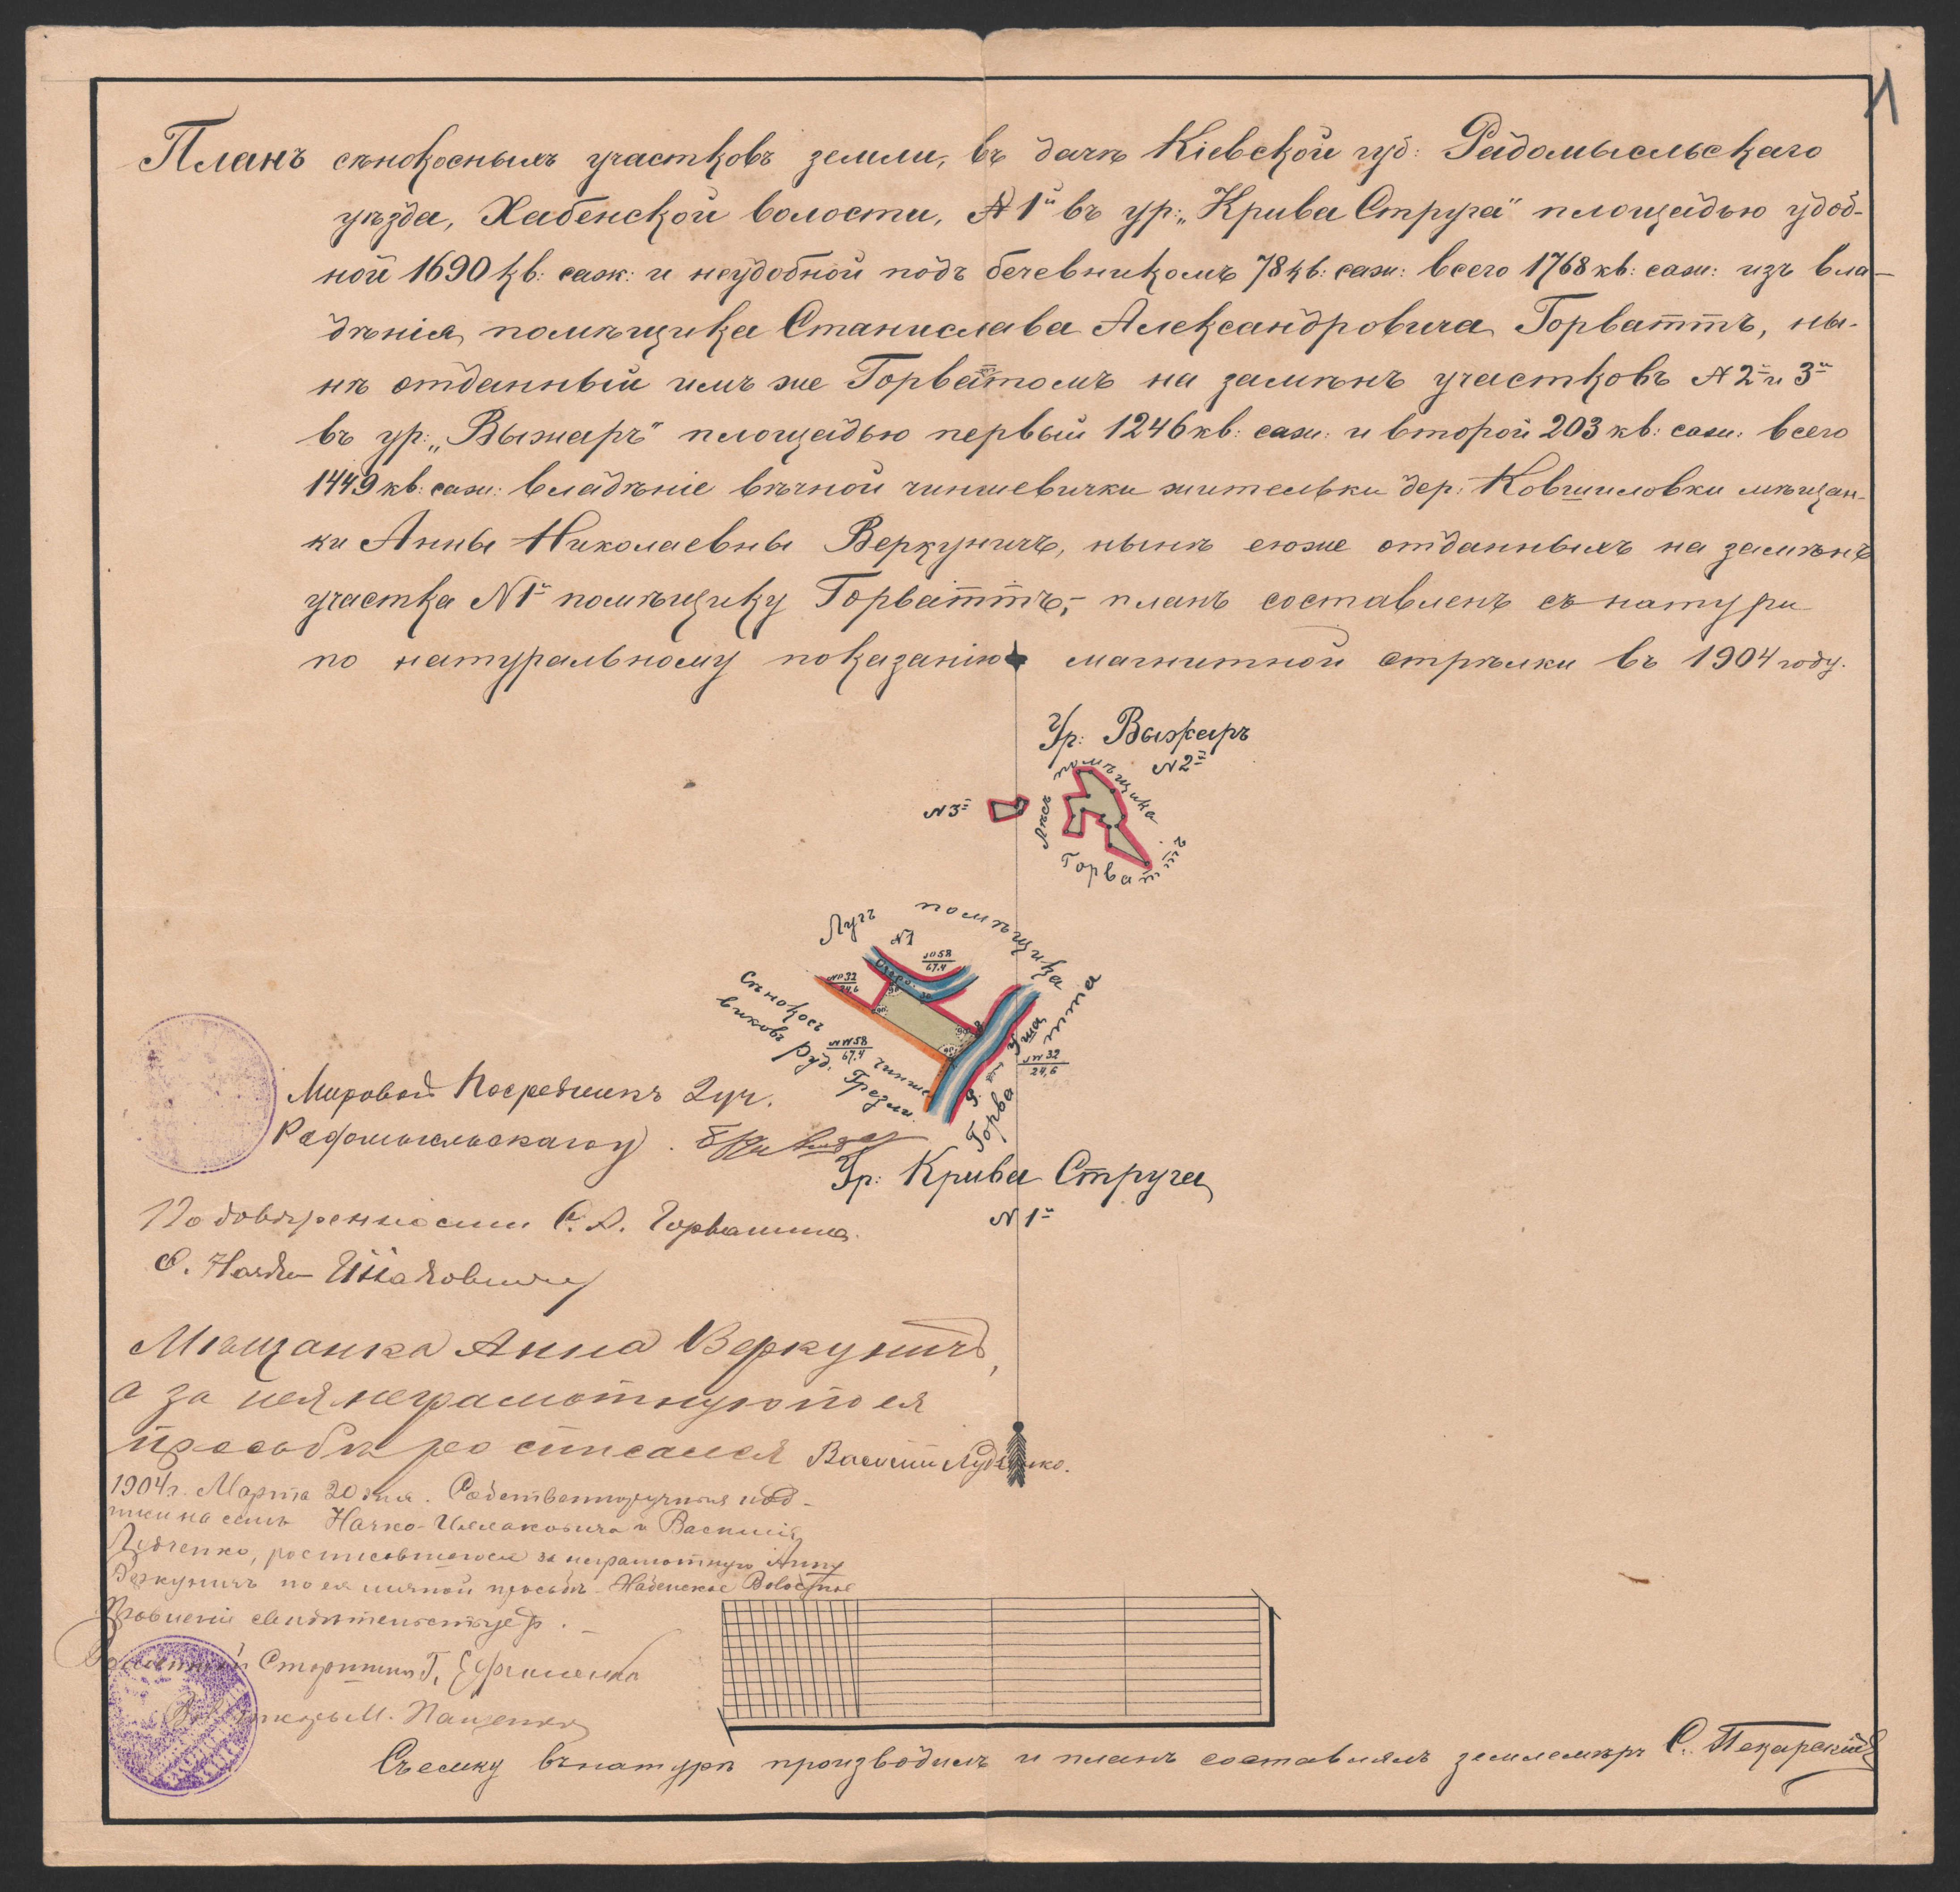 1
Планъ сѣнокосныхъ участковъ земли, въ дачѣ Кіевской губ: Радомысльскаго
уѣзда, Хабенской волости, № 1й въ ур: „Крива Струга" площадью удоб-
ной 1690 кв: саж: и неудобной подъ бечевникомъ 78 кв: саж: всего 1768 кв: саж: изъ вла-
дѣнія помѣщика Станислава Александровича Горваттъ, ны-
нѣ отданный имъ же Горваттомъ на замѣнъ участковъ № 2й и 3й
въ ур: „Выжаръ" площадью первый 1246 кв: саж: и второй 203 кв: саж: всего
1449 кв: саж: владѣніе вѣчной чиншевички жительки дер: Ковшиловки мѣщан-
ки Анны Николаевны Веркуничъ, нынѣ еюже отданныхъ на замѣнъ
участка № 1й помѣщику Горваттъ,- планъ составленъ съ натури
по натуральному показанію магнитной стрѣлки въ 1904 году.
Ур: Выжаръ
№ 2й
№ 3й
Лѣсъ помѣщика
Горваттъ
Лугъ помѣщика
№ 1
58
67.4
32
24,6
Сѣнокосъ чинше
виковъ Руд. Грезли
NW 58
67.4
Р. Уша
NW 32
24,6
Горватта
Ур: Крива Струга
№ 1й
Мировой Посредникъ 2 уч.
Радомысльскаго у.
По довѣренности С. А. Горватта
Мѣщанка Анна Веркуничъ,
а за нея неграмотную по ея
просьбѣ росписался Василій
1904 г. Марта 20 дня. Собственноручныя под-
писи на семъ и Василія
росписавшагося за неграмотную Анну
Веркуничъ по ея личной просьбѣ Хабенское Волостное
Правленіе свидѣтельствуетъ.
Волостной Старшина Г.
М. Пащенко
Съемку въ натурѣ производилъ и планъ составлялъ землемѣръ С. Пекарскій